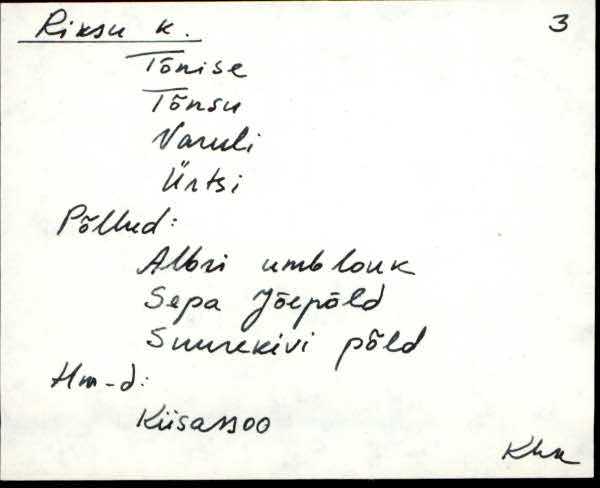 Riksu k. 3
Tõnise
Tõnsu
Varuli
Ürtsi
Põllud:
Albri umblouk
Sepa Jõepõld
Suurekivi põld
Hm-d:
Kiisassoo
Khn